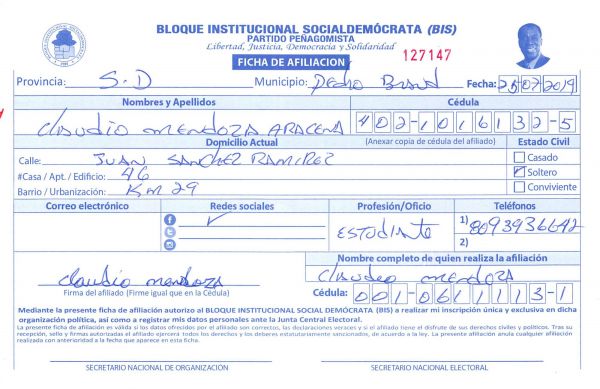 BLOQUE INSTITUCIONAL SOCIALDEMÓCRATA (BIS)
PARTIDO PEÑAGOMISTA
Libertad, Justicia, Democracia y Solidaridad
FICHA DE AFILIACION
127147
Provincia: S.D Municipio: Pedro Brand Fecha: 25/07/2019
Nombres y Apellidos Cédula
Claudio Mendoza Aracena 402-1016132-5
Domicilio Actual (Anexar copia de cédula del afiliado) Estado Civil
Calle: Juan Sanchez Ramirez Casado
#Casa / Apt. / Edificio: 46 Soltero
Barrio / Urbanización: Km 29 Conviviente
Correo electrónico Redes sociales Profesión/Oficio Teléfonos
Estudiante 1) 8093936642
2)
Nombre completo de quien realiza la afiliación
Claudio Mendoza Claudio Mendoza
Firma del afiliado (Firme igual que en la Cédula) Cédula: 001-0611113-1
Mediante la presente ficha de afiliación autorizo al BLOQUE INSTITUCIONAL SOCIAL DEMÓCRATA (BIS) a realizar mi inscripción única y exclusiva en dicha
organización política, así como a registrar mis datos personales ante la Junta Central Electoral.
La presente ficha de afiliación es válida si los datos ofrecidos por el afiliado son correctos, las declaraciones veraces y si el afiliado tiene el disfrute de sus derechos civiles y políticos. Tras su
recepción, sello y firmas autorizadas el afiliado ejercerá todos los derechos y los deberes estatutariamente sancionados, de acuerdo a la ley. La presente afiliación anula cualquier afiliación
realizada con anterioridad a la fecha que aparece en esta ficha.
SECRETARIO NACIONAL DE ORGANIZACIÓN SECRETARIO NACIONAL ELECTORAL